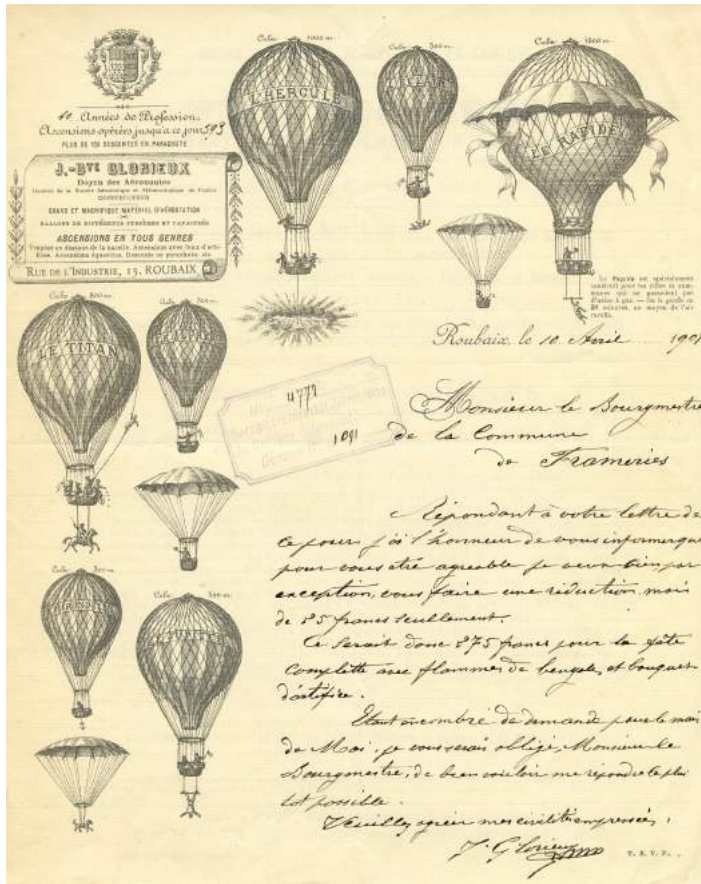 40 Années de Profession
Ascensions opérées jusqu'à ce jour 593
PLUS DE 150 DESCENTES EN PARACHUTE
J.-Bte GLORIEUX
Doyen des Aéronautes
CONSTRUCTEUR
GRAND ET MAGNIFIQUE MATÉRIEL D'AÉROSTATION
BALLONS DE DIFFÉRENTS SYSTÈMES ET CAPACITÉS
ASCENSIONS EN TOUS GENRES
Trapèze au-dessous de la nacelle. Ascensions avec feux d'arti-
fices. Ascensions équestres. Descente en parachute, etc.
RUE DE L'INDUSTRIE, 15, ROUBAIX
Cube 1000 m
L'HERCULE
Cube 300 m
Cube 1200 m
LE RAPIDE
Le Rapide est spécialement
construit pour les villes ou com-
munes qui ne possèdent pas
d'usine à gaz. — On le gonfle en
minutes, au moyen de l'air
Cube 800 m
LE TITAN
Cube
Cube
Cube 500 m
LE JUPITER
Roubaix, le 10 Avril 190
4779
1091
Monsieur le Bourgmestre
de la Commune
de Frameries
Répondant à votre lettre de
ce jour j'ai l'honneur de vous informer que
pour vous être agréable je veux bien par
exception, vous faire une réduction mais
de 25 francs seullement.
Ce serait donc 275 francs pour la fête
complette avec flammes de bengale, et bouquet
d'artifice.
Etant encombré de demande pour le mois
de Mai, je vous serais obligé, Monsieur le
Bourgmestre, de bien vouloir me répondre le plus
tot possible.
Veuillez agréer mes civilités empressées,
J. Glorieux
T. S. V. P.